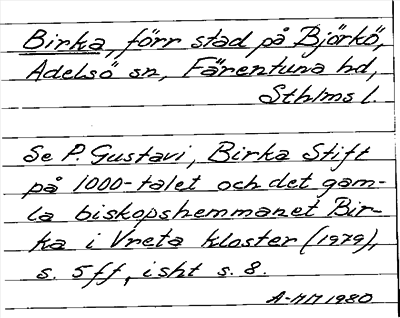 Birka, förr stad på Björkö,
Adelsö sn, Färentuna hd,
Sthlms l.
Se P. Gustavi, Birka Stift
på 1000-talet och det gam-
la biskopshemmanet Bir-
ka i Vreta kloster (1979),
s. 5ff, isht s. 8.
A-MM 1980